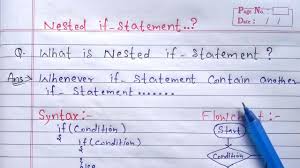 Page No.:
Date: / /
Nested if-Statement..?
Q. What is Nested if-Statement?
Ans> Whenever if Statement Contain another
if-Statement.......
Syntax:-
Flowchart:-
if(Condition)
{
if(Condition)
{
Start
Condition